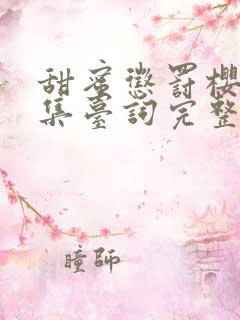 甜蜜懲罰櫻
集臺詞完整
瞳師